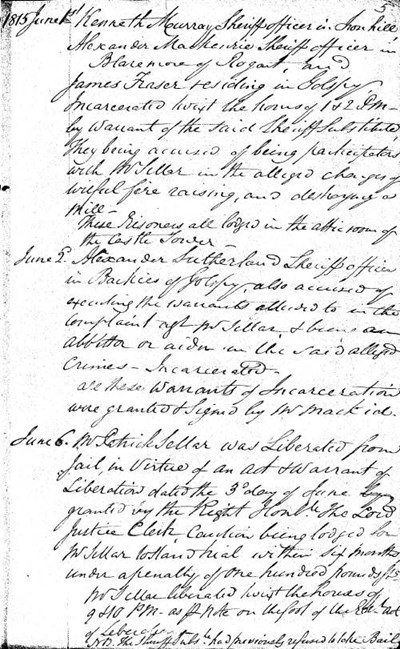 5
1815 June 1st Kenneth Murray Sheriff officer in Ironhill
Alexander MacKenzie Sheriff officer in
Blaremore of Rogart, and
James Fraser residing in Golspy,
Incarcerated twixt the hours of 1 & 2 PM—
by Warrant of the said Sheriff Substitute,
They being accused of being participators
with Mr Sellar in the alleged charges of
wilful fire raising, and destroying a
Mill—
These Prisoners all lodged in the attic room of
the Castle Tower—
June 2d. Alexander Sutherland Sheriff officer
in Backies of Golspy, also accused of
executing the warrants alluded to in the
Complaint agt Mr Sellar, & being an
abbettor or aider in the said alleged
Crimes— Incarcerated—
all these Warrants of Incarceration
were granted & Signed by Mr Mackid.
June 6. Mr Patrick Sellar was Liberated from
Jail, in Virtue of an act & Warrant of
Liberation dated the 3d day of June
granted by the Right Honble The Lord
Justice Clerk, Caution being lodged for
Mr Sellar to stand trial within Six Months
under a penalty of One hundred pounds
Mr Sellar liberated twixt the hours of
9 & 10 PM— as pr Note on the foot of the act
of Liberation
NB. The Sheriff Subte. had previously refused to take Bail